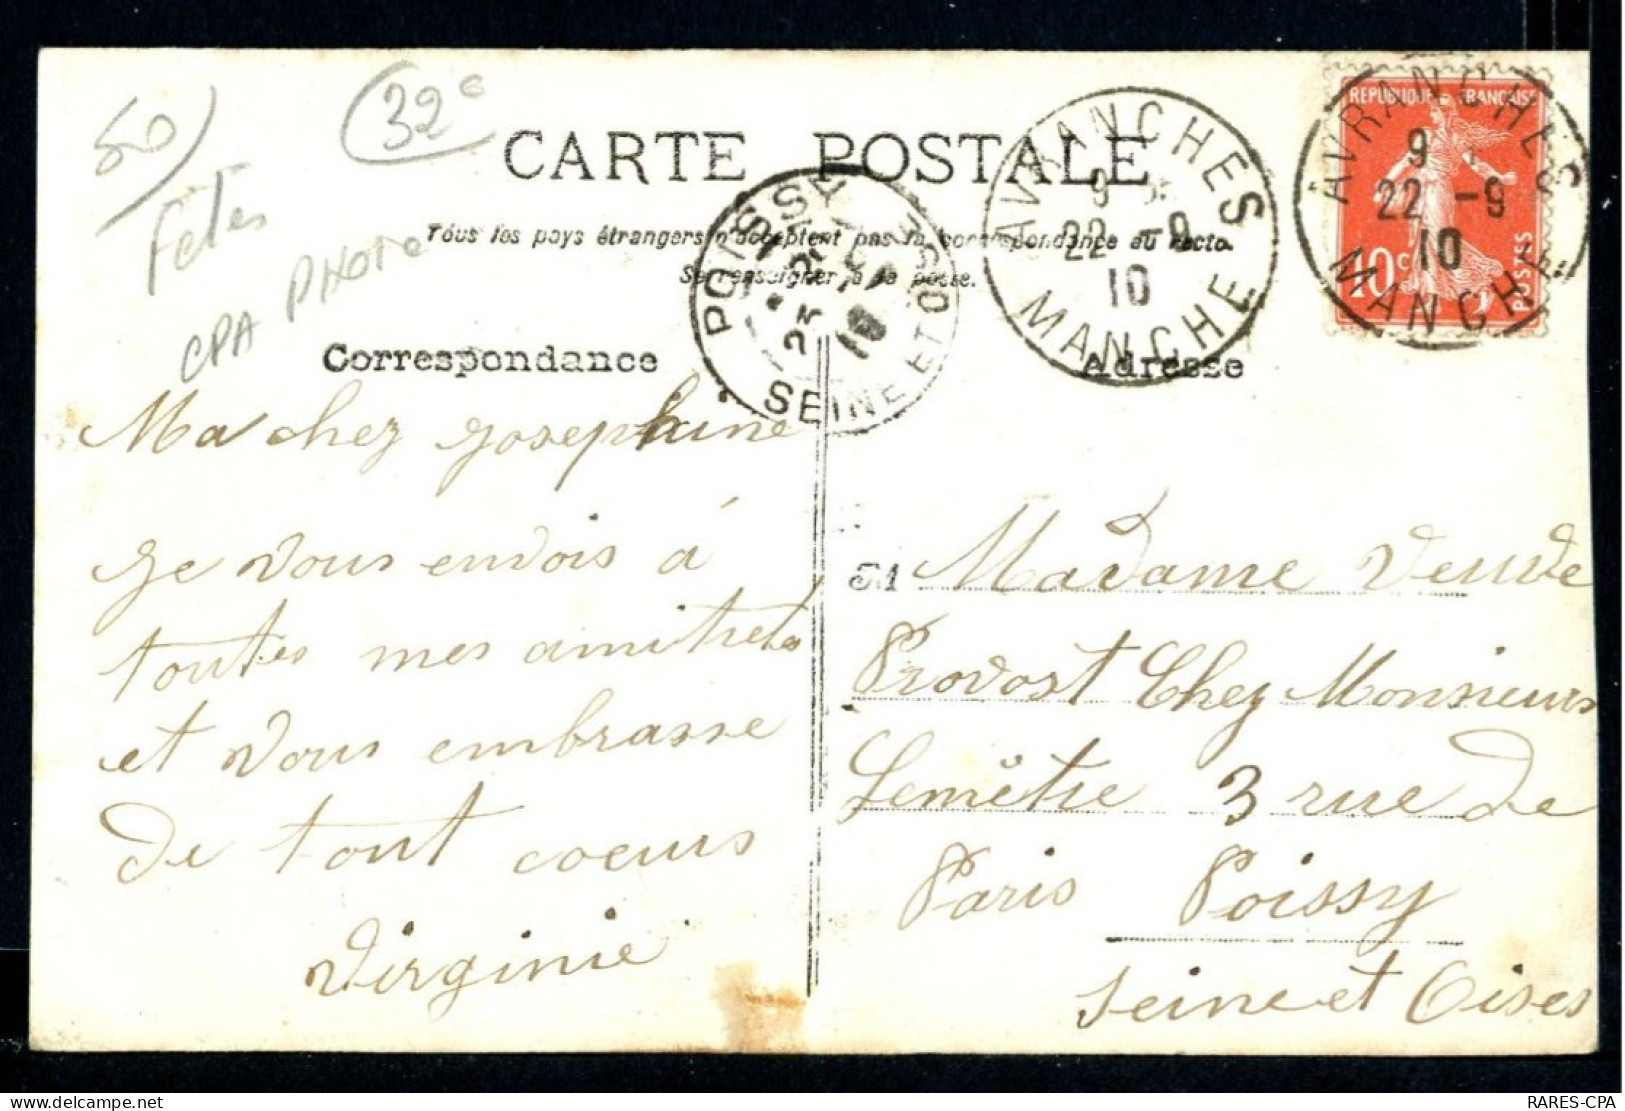 50
32e
Fêtes
CPA PHOTO
CARTE POSTALE
Tous les pays étrangers n'acceptent pas la correspondance au recto.
Se renseigner à la poste.
Correspondance
Adresse
POISSY
SEINE ET OISE
AVRANCHES
9
22 -9
10
MANCHE
REPUBLIQUE FRANÇAISE
10c
POSTES
AVRANCHES
9
22 -9
10
MANCHE
Ma chez Josephine
Je vous envois á
toutes mes amitiets
et vous embrasse
de tout coeurs
Virginie
51
Madame Veuve
Provost Chez Monsieurs
Lemêtre 3 rue de
Paris Poissy
Seine et Oises
RARES-CPA